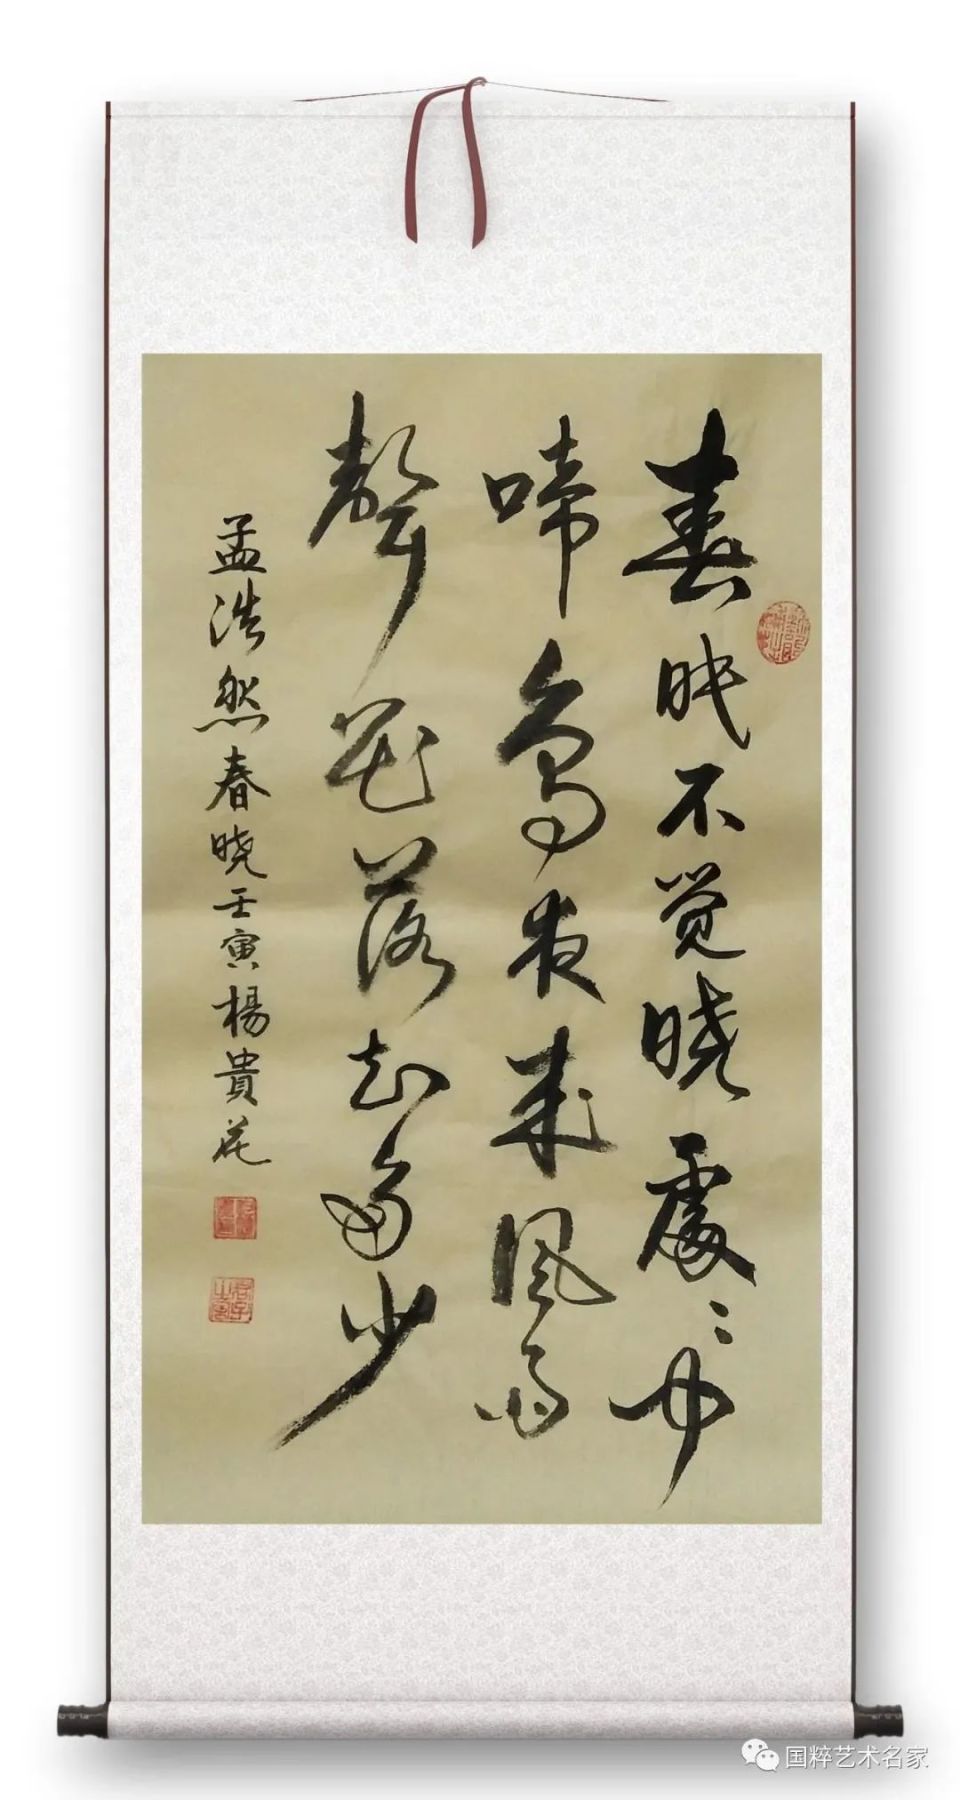 春眠不觉晓處〻闻
啼鸟夜来风雨
聲花落知多少
孟浩然春晓壬寅楊貴花
国粹艺术名家